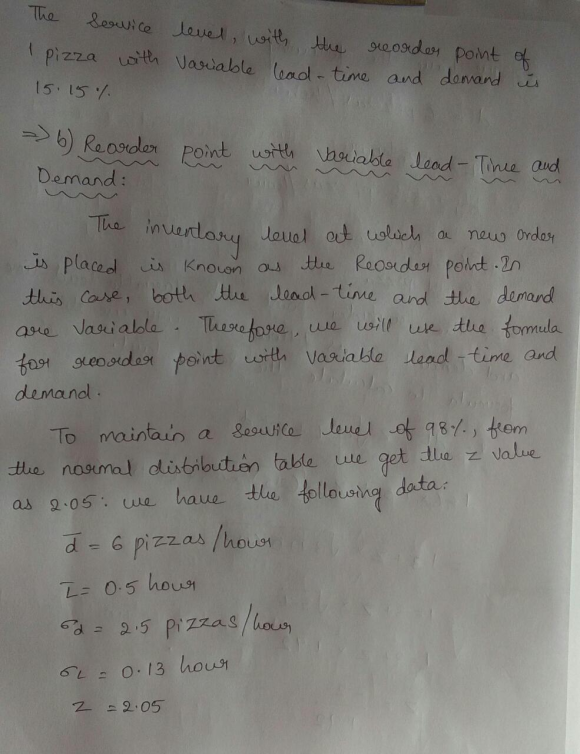 The Service level, with the reorder point of
1 pizza with Variable lead-time and demand is
15.15%
=> b) Reorder point with Variable lead-Time and
Demand:
The inventory level at which a new order
is placed is known as the Reorder point. In
this case, both the lead-time and the demand
are Variable. Therefore, we will use the formula
for reorder point with Variable lead-time and
demand.
To maintain a service level of 98%, from
the normal distribution table we get the z value
as 2.05: we have the following data:
d̅ = 6 pizzas/hour
L̅ = 0.5 hour
σd = 2.5 pizzas/hour
σL = 0.13 hour
Z = 2.05